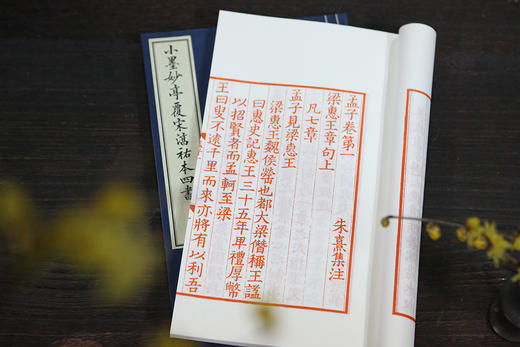 小墨妙亭覆宋淳祐本四書
孟子卷第一　朱熹集注
梁惠王章句上
凡七章
孟子見梁惠王
梁惠王魏侯罃也都大梁僭稱王謚
曰惠史記惠王三十五年卑禮厚幣
以招賢者而孟軻至梁
王曰叟不遠千里而來亦將有以利吾